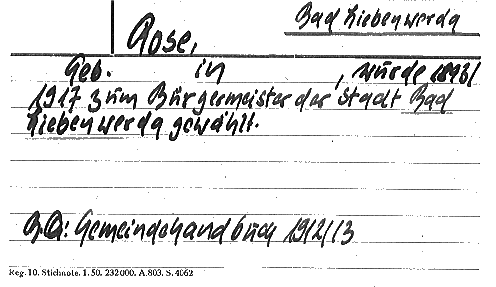 Bad Liebenwerda
Rose,
Geb. in , wurde 1896/
1917 zum Bürgermeister der Stadt Bad
Liebenwerda gewählt.
B.A: Gemeindehandbuch 1912/13
Reg. 10. Stichnote. 1. 50. 232000. A. 803. S. 4062